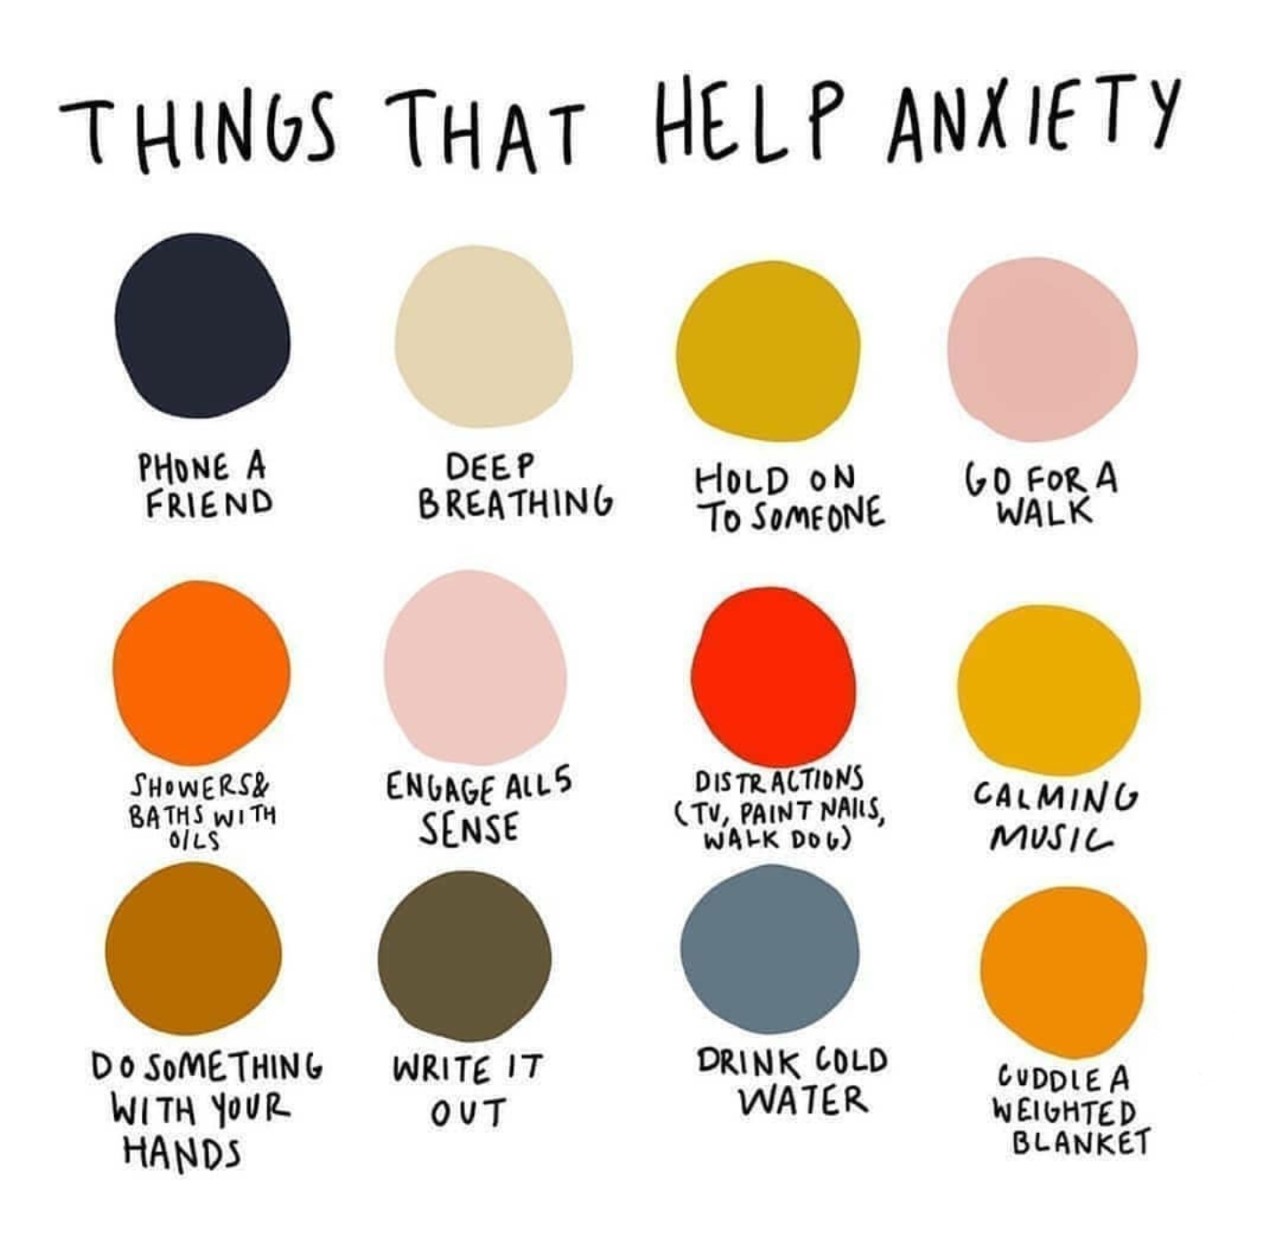 THINGS THAT HELP ANXIETY
PHONE A
FRIEND
DEEP
BREATHING
HOLD ON
TO SOMEONE
GO FOR A
WALK
SHOWERS&
BATHS WITH
OILS
ENGAGE ALL 5
SENSE
DISTRACTIONS
(TV, PAINT NAILS,
WALK DOG)
CALMING
MUSIC
DO SOMETHING
WITH YOUR
HANDS
WRITE IT
OUT
DRINK COLD
WATER
CUDDLE A
WEIGHTED
BLANKET